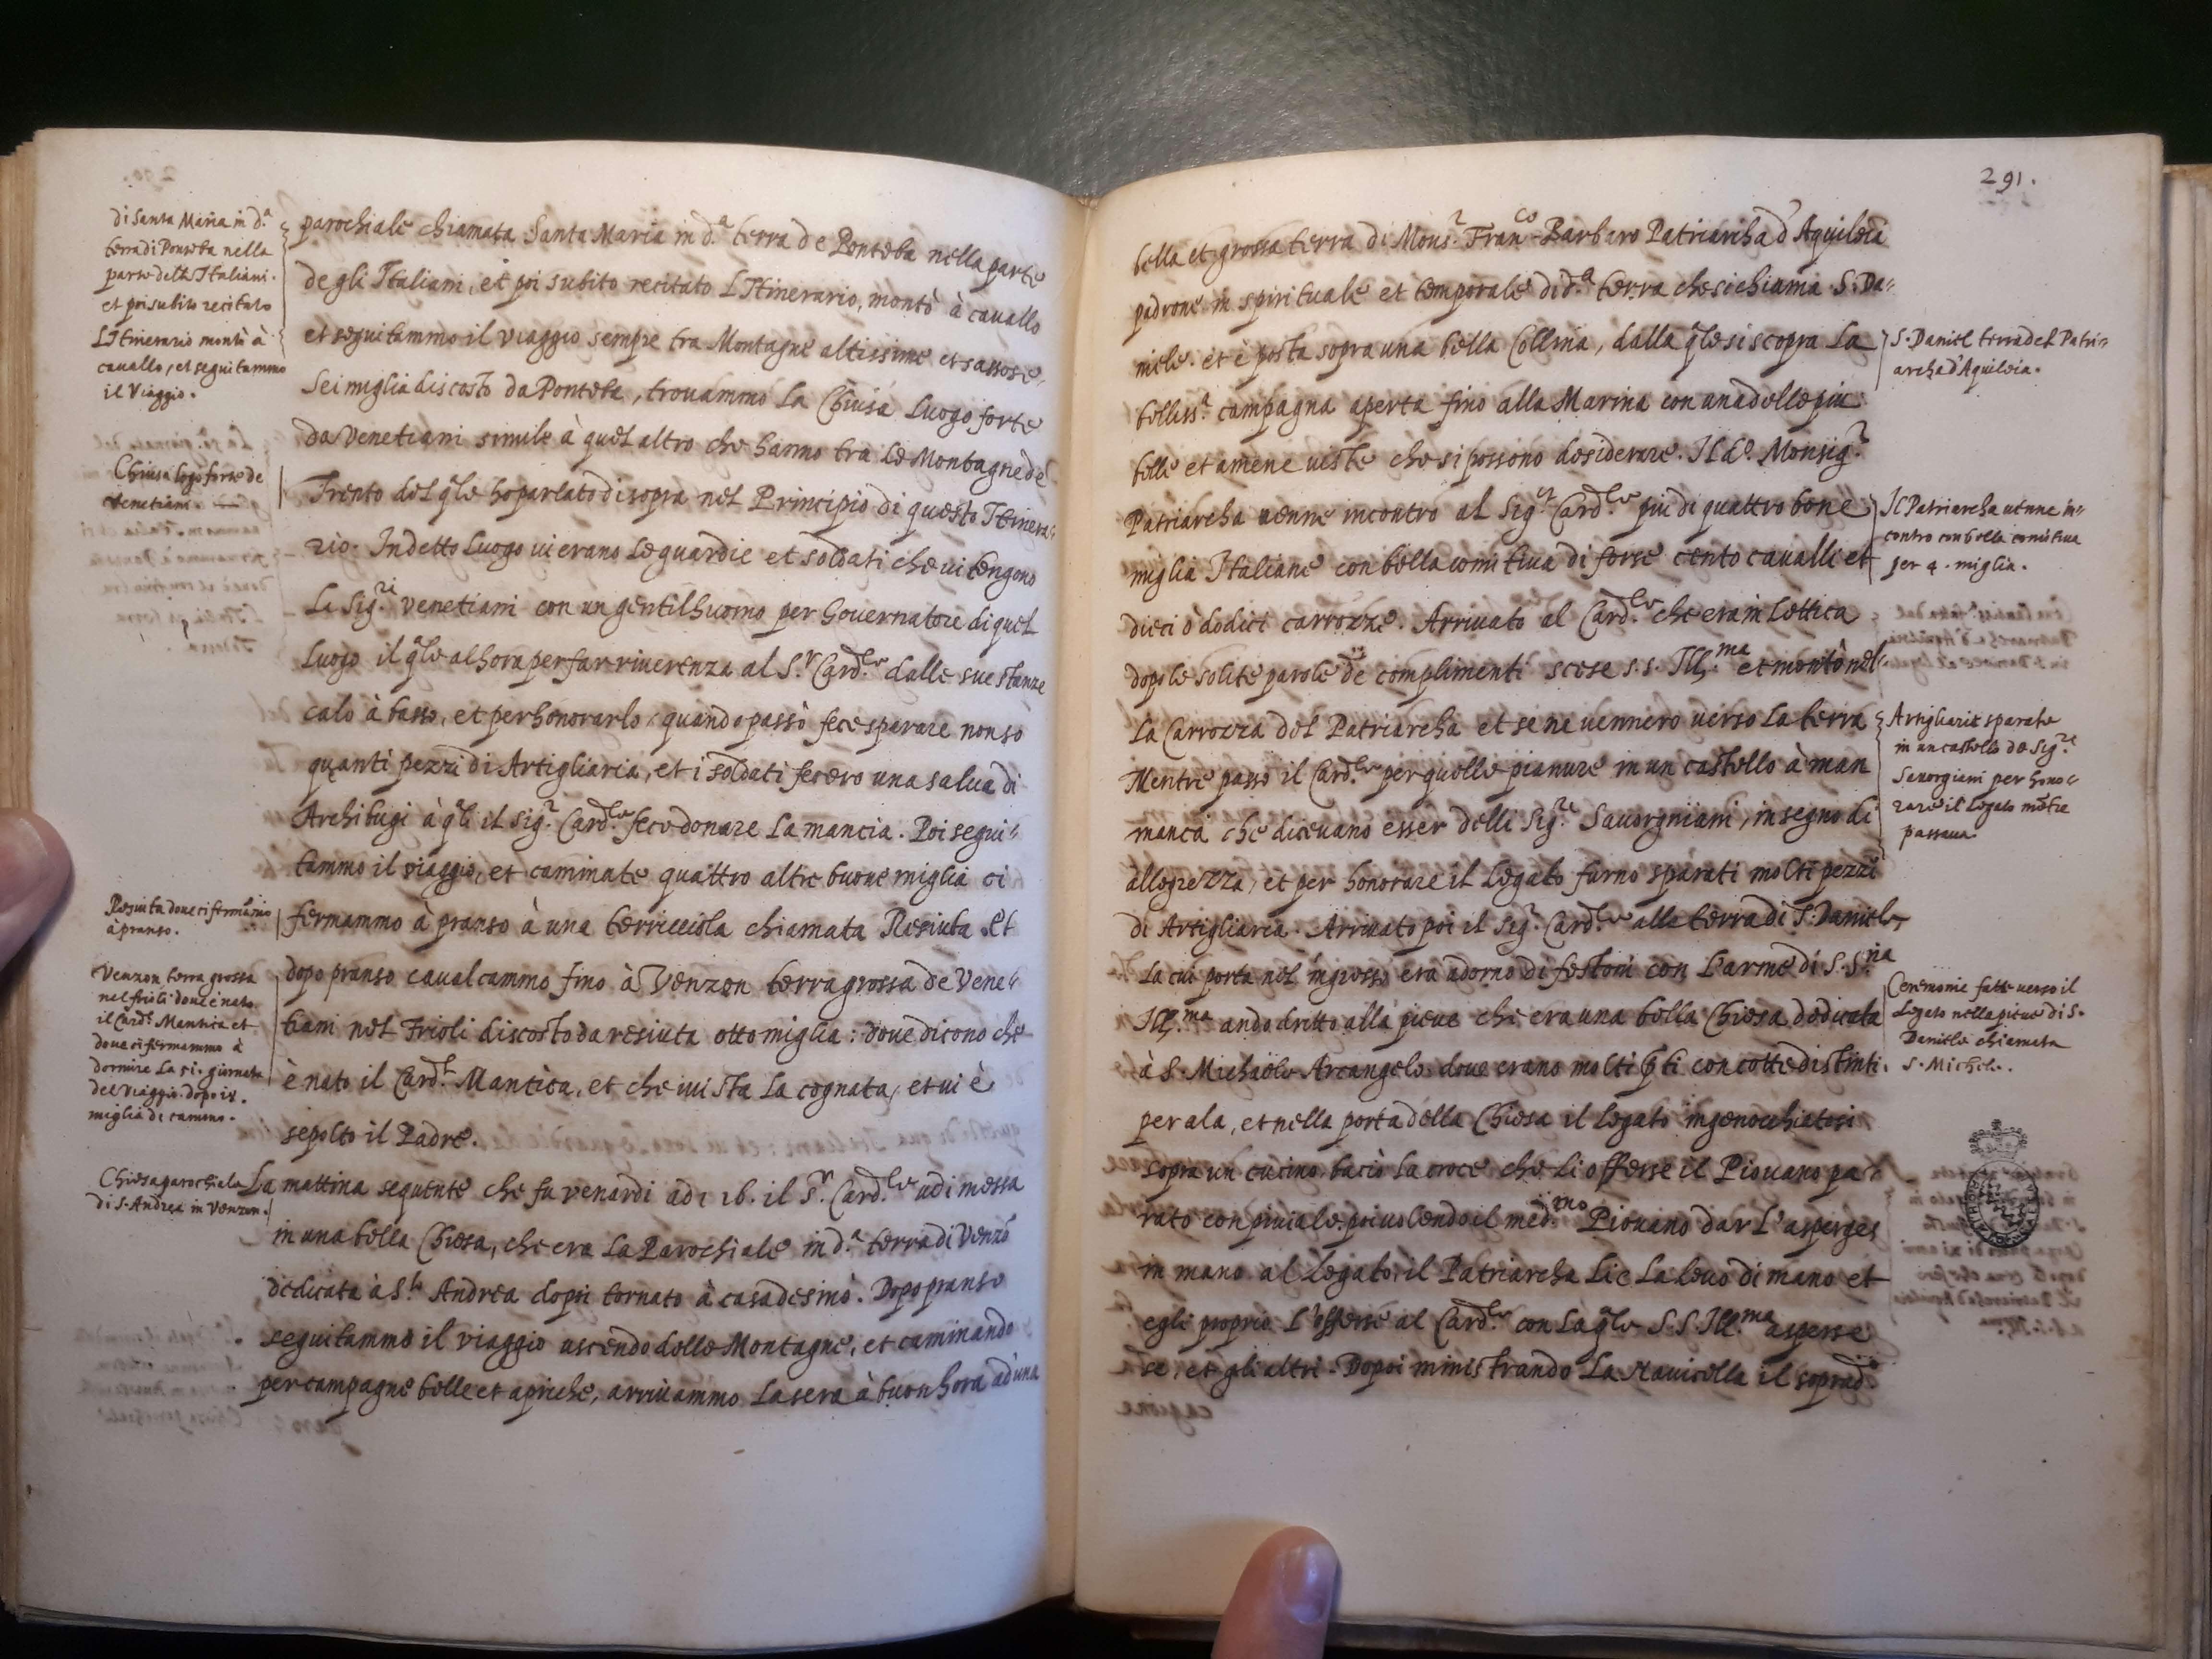 di Santa Maria in d.ª
terra di Ponteba nella
parte dell'Italiani.
et poi subito recitato
L'Itinerario montò à
cavallo, et seguitammo
il Viaggio.
Chiusa logo forte de
Venetiani.
Resiuta dove ci fermammo
à pranso.
Venzon terra grossa
nel frioli dove è nato
il Card.l Mantica et
dove ci fermammo à
dormire La 51. giornata
del viaggio dopo 18.
miglia di camino.
Chiesa parochiale
di S. Andrea in Venzon.
parochiale chiamata Santa Maria in d.ª terra de Ponteba nella parte
degli Italiani, et poi subito recitato L'Itinerario, montò à cavallo
et seguitammo il viaggio sempre tra Montagne altissime et sassose.
Sei miglia discosto da Ponteba, trovammo La Chiusa Luogo forte
da Venetiani simile à quel altro che hanno tra Le Montagne de
Trento del q̃le ho parlato di sopra nel Principio di questo Itinera=
rio. In detto Luogo vi erano Le guardie et soldati che vi tengono
La Sig.ri Venetiani con un gentilhuomo per Governatore di quel
Luogo il q̃le alhora per far riverenza al S.r Card.le dalle sue stanze
calò à basso, et per honorarlo quando passò fece sparare non so
quanti pezzi di Artigliaria, et i soldati fecero una salva di
Archibugi à q̃li il Sig.r Card.le fece donare La mancia. Poi segui=
tammo il viaggio, et caminate quattro altre buone miglia ci
fermammo à pranso à una terricciola chiamata Resiuta. Et
dopo pranso cavalcammo fino à Venzon terra grossa de Vene=
tiani nel Frioli discosto da resiuta otto miglia: dove dicono che
è nato il Card.l Mantica, et che ivi sta La cognata, et vi è
sepolto il Padre.
La mattina sequente che fu venardi adi 16. il S.r Card.le udi messa
in una bella Chiesa, che era La Parochiale in d.ª terra di Venzõ
dedicata à S.to Andrea dopoi tornato à casa desinò. Dopo pranso
seguitammo il viaggio uscendo delle Montagne, et caminando
per campagne belle et apriche, arrivammo La sera à buon hora ad una
291.
bella et grossa terra di Mons.r Fran.co Barbaro Patriarcha d'Aquileia
padrone in spirituale et temporale di d.ª terra che si chiama S. Da=
niele. et è posta sopra una bella Collina, dalla q̃le si scopra La
belliss.ª campagna aperta fino alla Marina con una delle più
belle et amene viste che si possono desiderare. Il d.º Monsig.r
Patriarcha venne incontro al Sig.r Card.le più di quattro bone
miglia Italiane con bella comitiva di forse cento cavalli et
dieci ò dodici carrozze. Arrivato al Card.le che era in Lettica
dopo le solite parole de complimenti scese S.S. Ill.ma et montò nel=
La Carrozza del Patriarcha et se ne vennero verso La terra
Mentre passò il Card.le per quelle pianure in un castello à man
manca che dicevano esser delli Sig.ri Savorgniani, in segno di
allegrezza, et per honorare il Legato furno sparati molti pezzi
di Artigliaria. Arrivato poi il Sig.r Card.le alla terra di S. Daniele,
La cui porta nel ingresso era adorno di festoni con L'arme di S. S.ria
Ill.ma andò dritto alla pieve che era una bella Chiesa dedicata
à S. Michaele Arcangelo dove erano molti p̃ti con cotte distinti
per ala, et nella porta della Chiesa il Legato ingenocchiatosi
sopra un cucino baciò La croce che Li offerse il Piovano pa=
rato con piviale. poi volendo il med.mo Piovano dar L'asperges
in mano al Legato, il Patriarcha Lie La levo di mano et
egli proprio L'offerse al Card.le con La q̃le S.S. Ill.ma asperse
se, et gli altri. Dopoi ministrando La Navicella il soprad.º
S. Daniel terra del Patri=
archa d'Aquileia.
Il Patriarcha venne in=
contro con bella comitiva
per 4. miglia.
Artigliarie sparate
in un castello de Sig.ri
Savorgiani per hono=
rare il Legato mẽtre
passava
Ceremonie fatte verso il
Legato nella pieve di S.
Daniele chiamata
S. Michele.